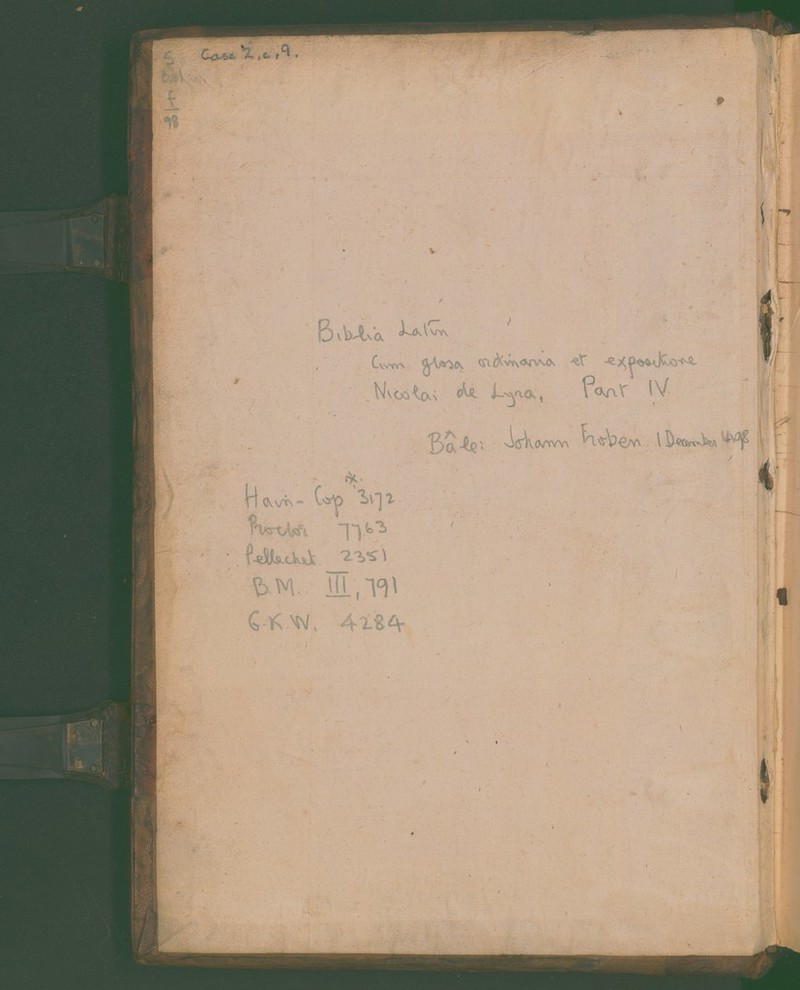 Case Z.c.9.
S
f
98
Biblia Latin
Cum glosa ordinaria et expositione
Nicolai de Lyra, Part IV
Bâle: Johann Froben 1 December 1498
Hain-Cop *3172
Proctor 7763
Pellechet 2351
B.M. III, 791
G.K.W. 4284